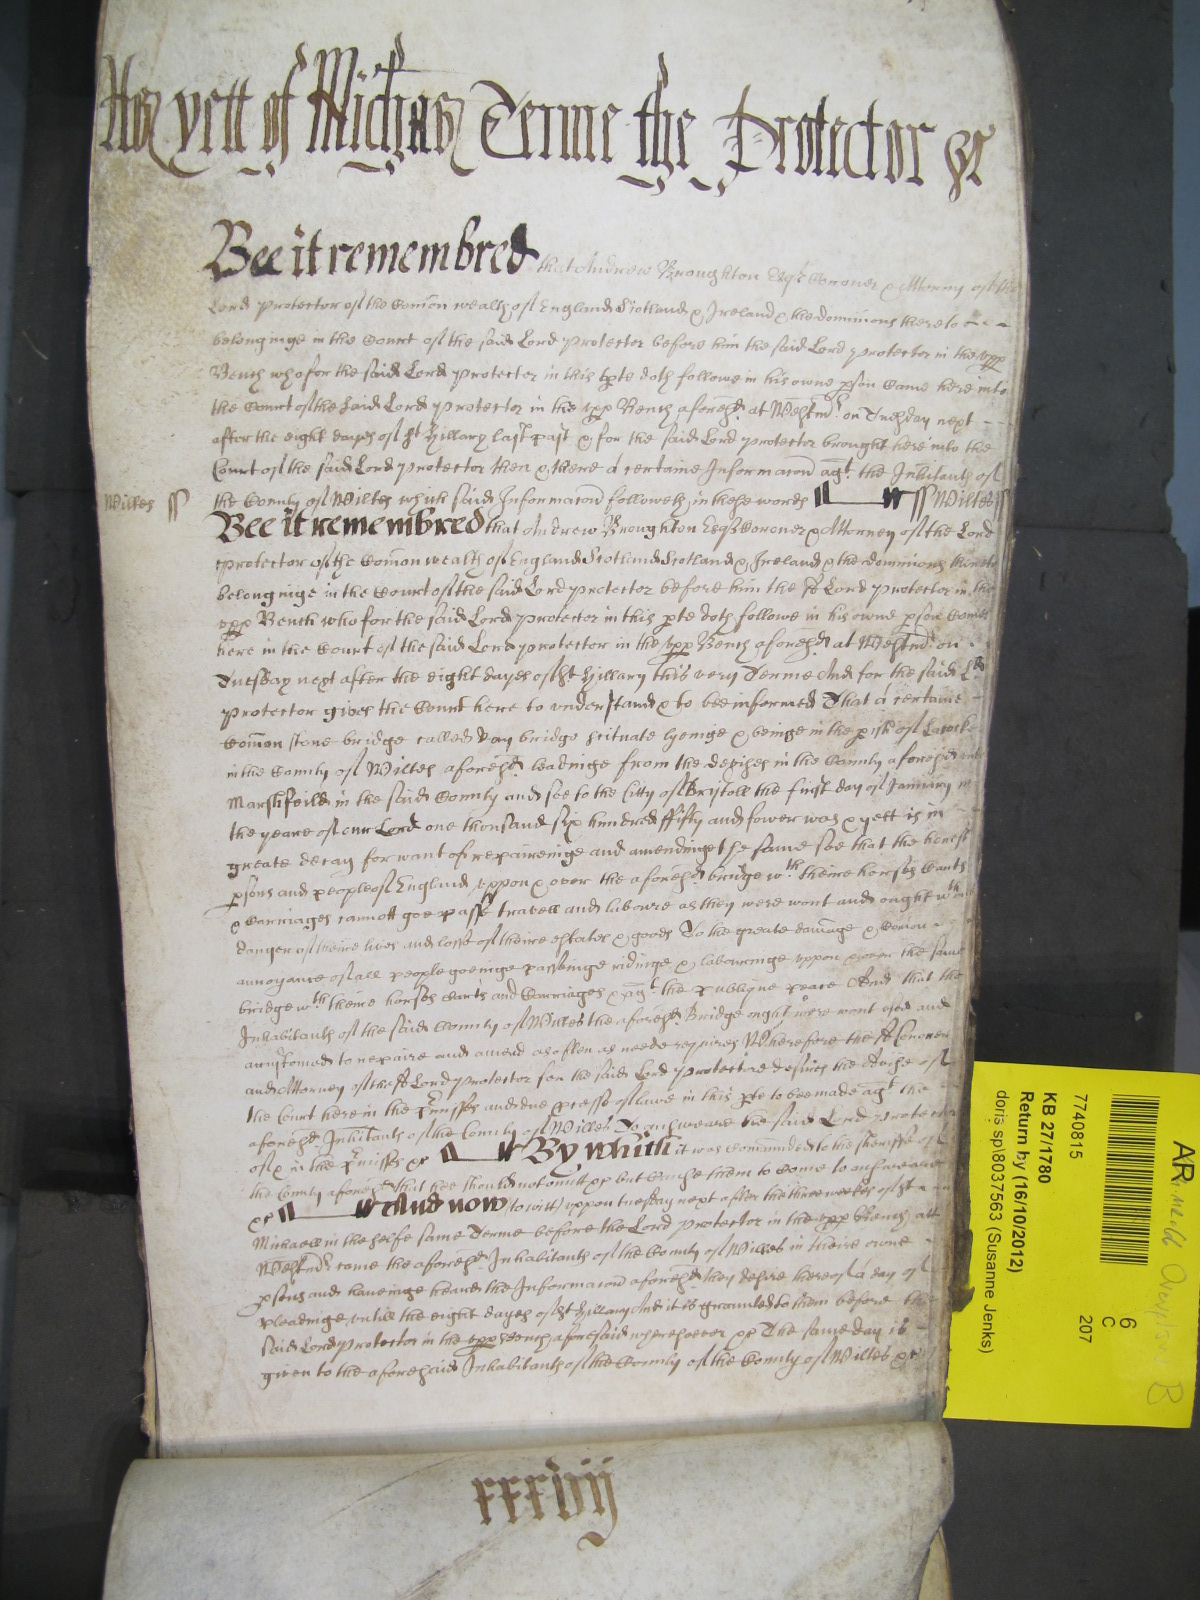 As yett of Michas Terme the Protector &c
Bee it remembred that Andrew Broughton Esqr Coroner & Attorny of the
Lord protector of the Comon wealth of England Scotland & Ireland & the dominions thereto
belonginge in the Court of the said Lord protector before him the said Lord protector in the upp
Bench who for the said Lord protector in this pte doth followe in his owne pson Came here into
the Court of the said Lord protector in the upp Bench aforesd at Westmr on Tuesday next
after the eight dayes of St Hillary last past & for the said Lord protector brought here into the
Court of the said Lord protector then & there a certaine Informacon agt the Inhitants of
Wiltes ss the County of Wiltes which said Informacon followeth in these words ss Wiltes ss
Bee it remembred that Andrew Broughton Esqr Coroner & Attorney of the Lord
protector of the Comon wealth of England Scotland Scotland & Ireland & the dominions thereto
belonginge in the Court of the said Lord protector before him the sd Lord protector in the
upp Bench who for the said Lord protector in this pte doth followe in his owne pson Comes
here in the Court of the said Lord protector in the upp Bench aforesd at Westmr on
Tuesday next after the eight dayes of St Hillary this very Terme And for the said Ld
protector gives the Court here to understand & to bee informed That a certaine
Comon stone bridge called Ray bridge scituate lyeinge & beinge in the pish of Lacocke
in the County of Wiltes aforesd leadinge from the devizes in the County aforesd unto
Marshfeild in the said County and soe to the Citty of Bristoll the first day of January in
the yeare of our Lord one thousand six hundred fifty and fower was & yett is in
great decay for want of repaireinge and amendinge the same soe that the honest
psons and people of England uppon & over the aforesd bridge wth theire horses Carts
& Carriages cannott goe passe travell and laboure as they were wont and ought wthout
danger of theire lives and losse of theire estates & goods To the greate damage & Comon
annoyance of all people goeinge passinge ridinge & labouringe uppon & over the same
bridge wth theire horses Carts and Carriages & agt the publique peace And that the
Inhabitants of the said County of Wiltes the aforesd Bridge ought & were wont used and
accustomed to repaire and amend as often as neede requires Wherefore the sd Coroner
and Attorney of the sd Lord protector for the said Lord protector desires the Advise of
the Court here in the pmisses and due presse of lawe in this pte to bee made agt the
aforesd Inhitants of the County of Wiltes To answeare the said Lord protector
of & in the pmisses &c By which it was comaunded to the sheriffe of
the County aforesd that hee should not omitt &c but cause them to come to answeare
&c And now (to witt) uppon tuesday next after the three weekes of St
Michaell in the selfe same Terme before the Lord protector in the upp Bench att
Westmr come the aforesd Inhabitants of the County of Wiltes in theire owne
psons and haveinge heard the Informacon aforesd they desire thereof a day of
pleadinge untill the eight dayes of St Hillary And it is graunted to them before the
said Lord protector in the upp bench aforesaid wheresoever &c The same day is
given to the aforesaid Inhabitants of the County of the County of Wiltes &c
xxxvij
AR
6
C
207
7740815
KB 27/1780
Return by (16/10/2012)
doris sp\8037563 (Susanne Jenks)